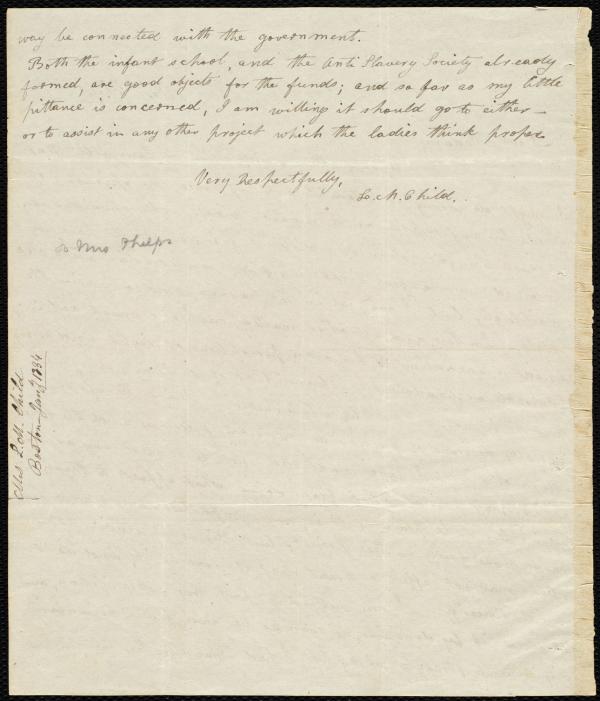 way be connected with the government.
Both the infant school, and the Anti Slavery Society already
formed, are good objects for the funds; and so far as my little
pittance is concerned, I am willing it should go to either –
or to assist in any other project which the ladies think proper.
Very Respectfully,
L. M. Child.
To Mrs Phelps
Mrs L. M. Child
Boston Jany 1834